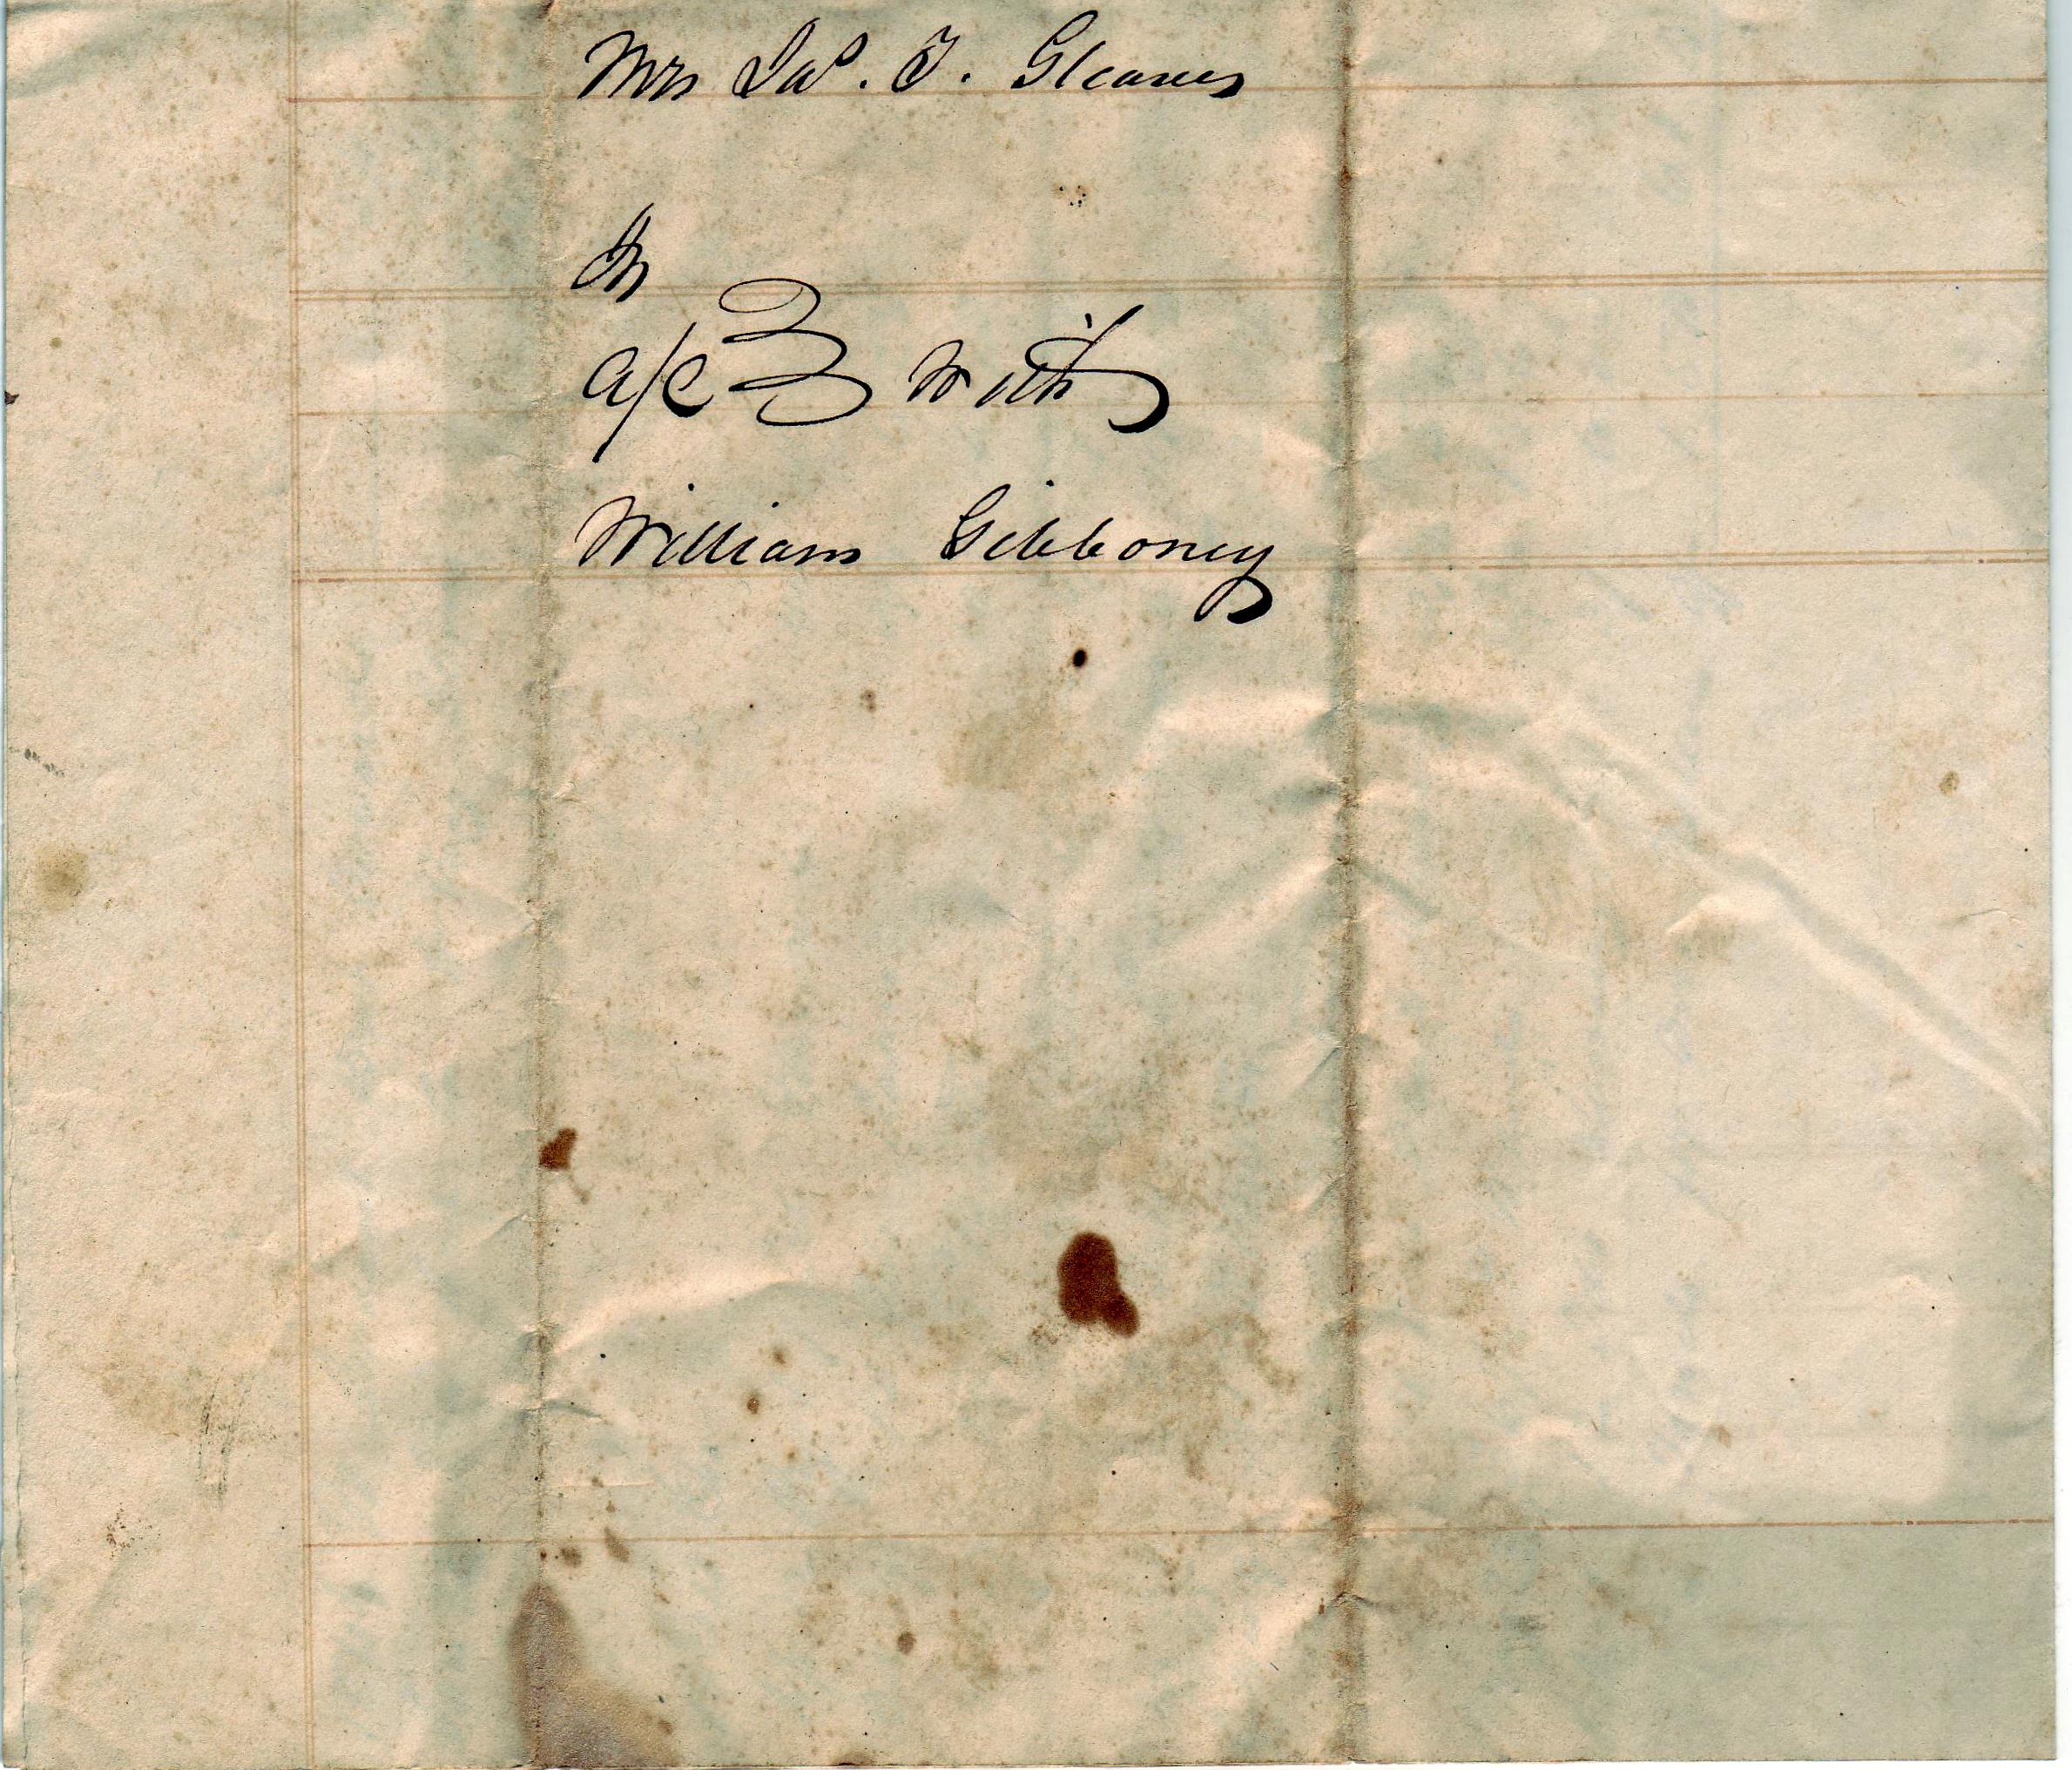 Mrs Jas. T. Gleaves
In
a/c with
William Gibboney